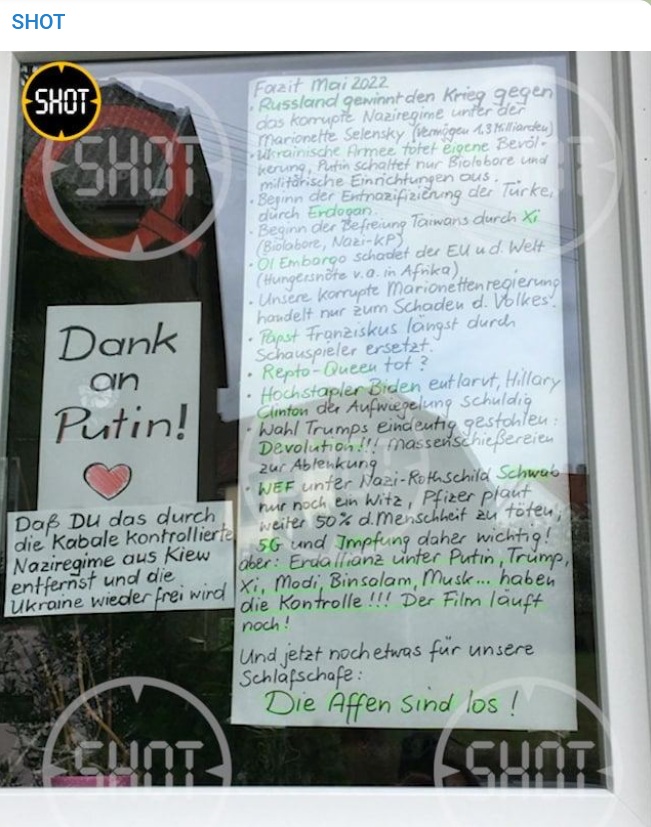 SHOT
SHOT
Fazit Mai 2022
• Russland gewinnt den Krieg gegen
das korrupte Naziregime unter der
Marionette Selensky (Vermögen 1,3 Milliarden)
• Ukrainische Armee tötet eigene Bevöl-
kerung, Putin schaltet nur Biolabore und
militärische Einrichtungen aus.
• Beginn der Entnazifizierung der Türkei
durch Erdogan.
• Beginn der Befreiung Taiwans durch Xi
(Biolabore, Nazi-KP)
• Öl Embargo schadet der EU u.d. Welt
(Hungersnöte v.a. in Afrika)
• Unsere korrupte Marionettenregierung
handelt nur zum Schaden d. Volkes.
• Papst Franziskus längst durch
Schauspieler ersetzt.
• Repto-Queen tot?
• Hochstapler Biden entlarvt, Hillary
Clinton der Aufwiegelung schuldig
• Wahl Trumps eindeutig gestohlen:
Devolution!!! Massenschießereien
zur Ablenkung
• WEF unter Nazi-Rothschild Schwab
nur noch ein Witz, Pfizer plant
weiter 50% d. Menschheit zu töten,
5G und Impfung daher wichtig!
aber: Erdallianz unter Putin, Trump,
Xi, Modi, Binsalam, Musk... haben
die Kontrolle!!! Der Film läuft
noch!
Und jetzt noch etwas für unsere
Schlafschafe:
Die Affen sind los!
Q
Dank
an
Putin!
Daß DU das durch
die Kabale kontrollierte
Naziregime aus Kiew
entfernst und die
Ukraine wieder frei wird
SHOT
SHOT
SHOT